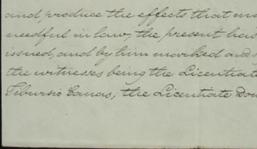 and produce the effects that
needful in law, the present has
issued, and by him marked and
the witnesses being the Licentiate
Tiburzio Canas, the Licentiate